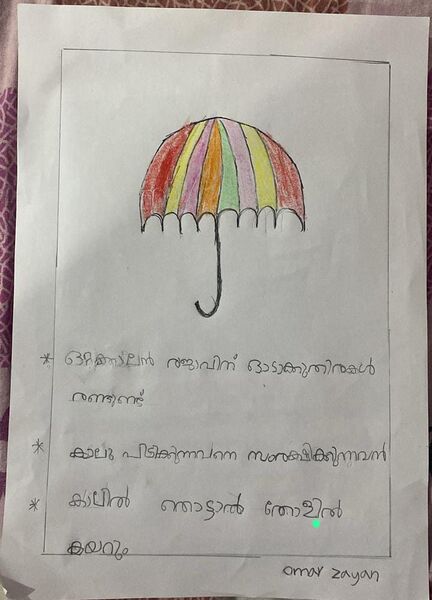 * ഒറ്റക്കാലൻ രജാവിന് ഓടാക്കുതിരകൾ
രണ്ടുണ്ട്
* കാലു പിടിക്കുന്നവനെ സംരക്ഷിക്കുന്നവൻ
* കാലിൽ തൊട്ടാൽ തോളിൽ
കയറും
omar zayan